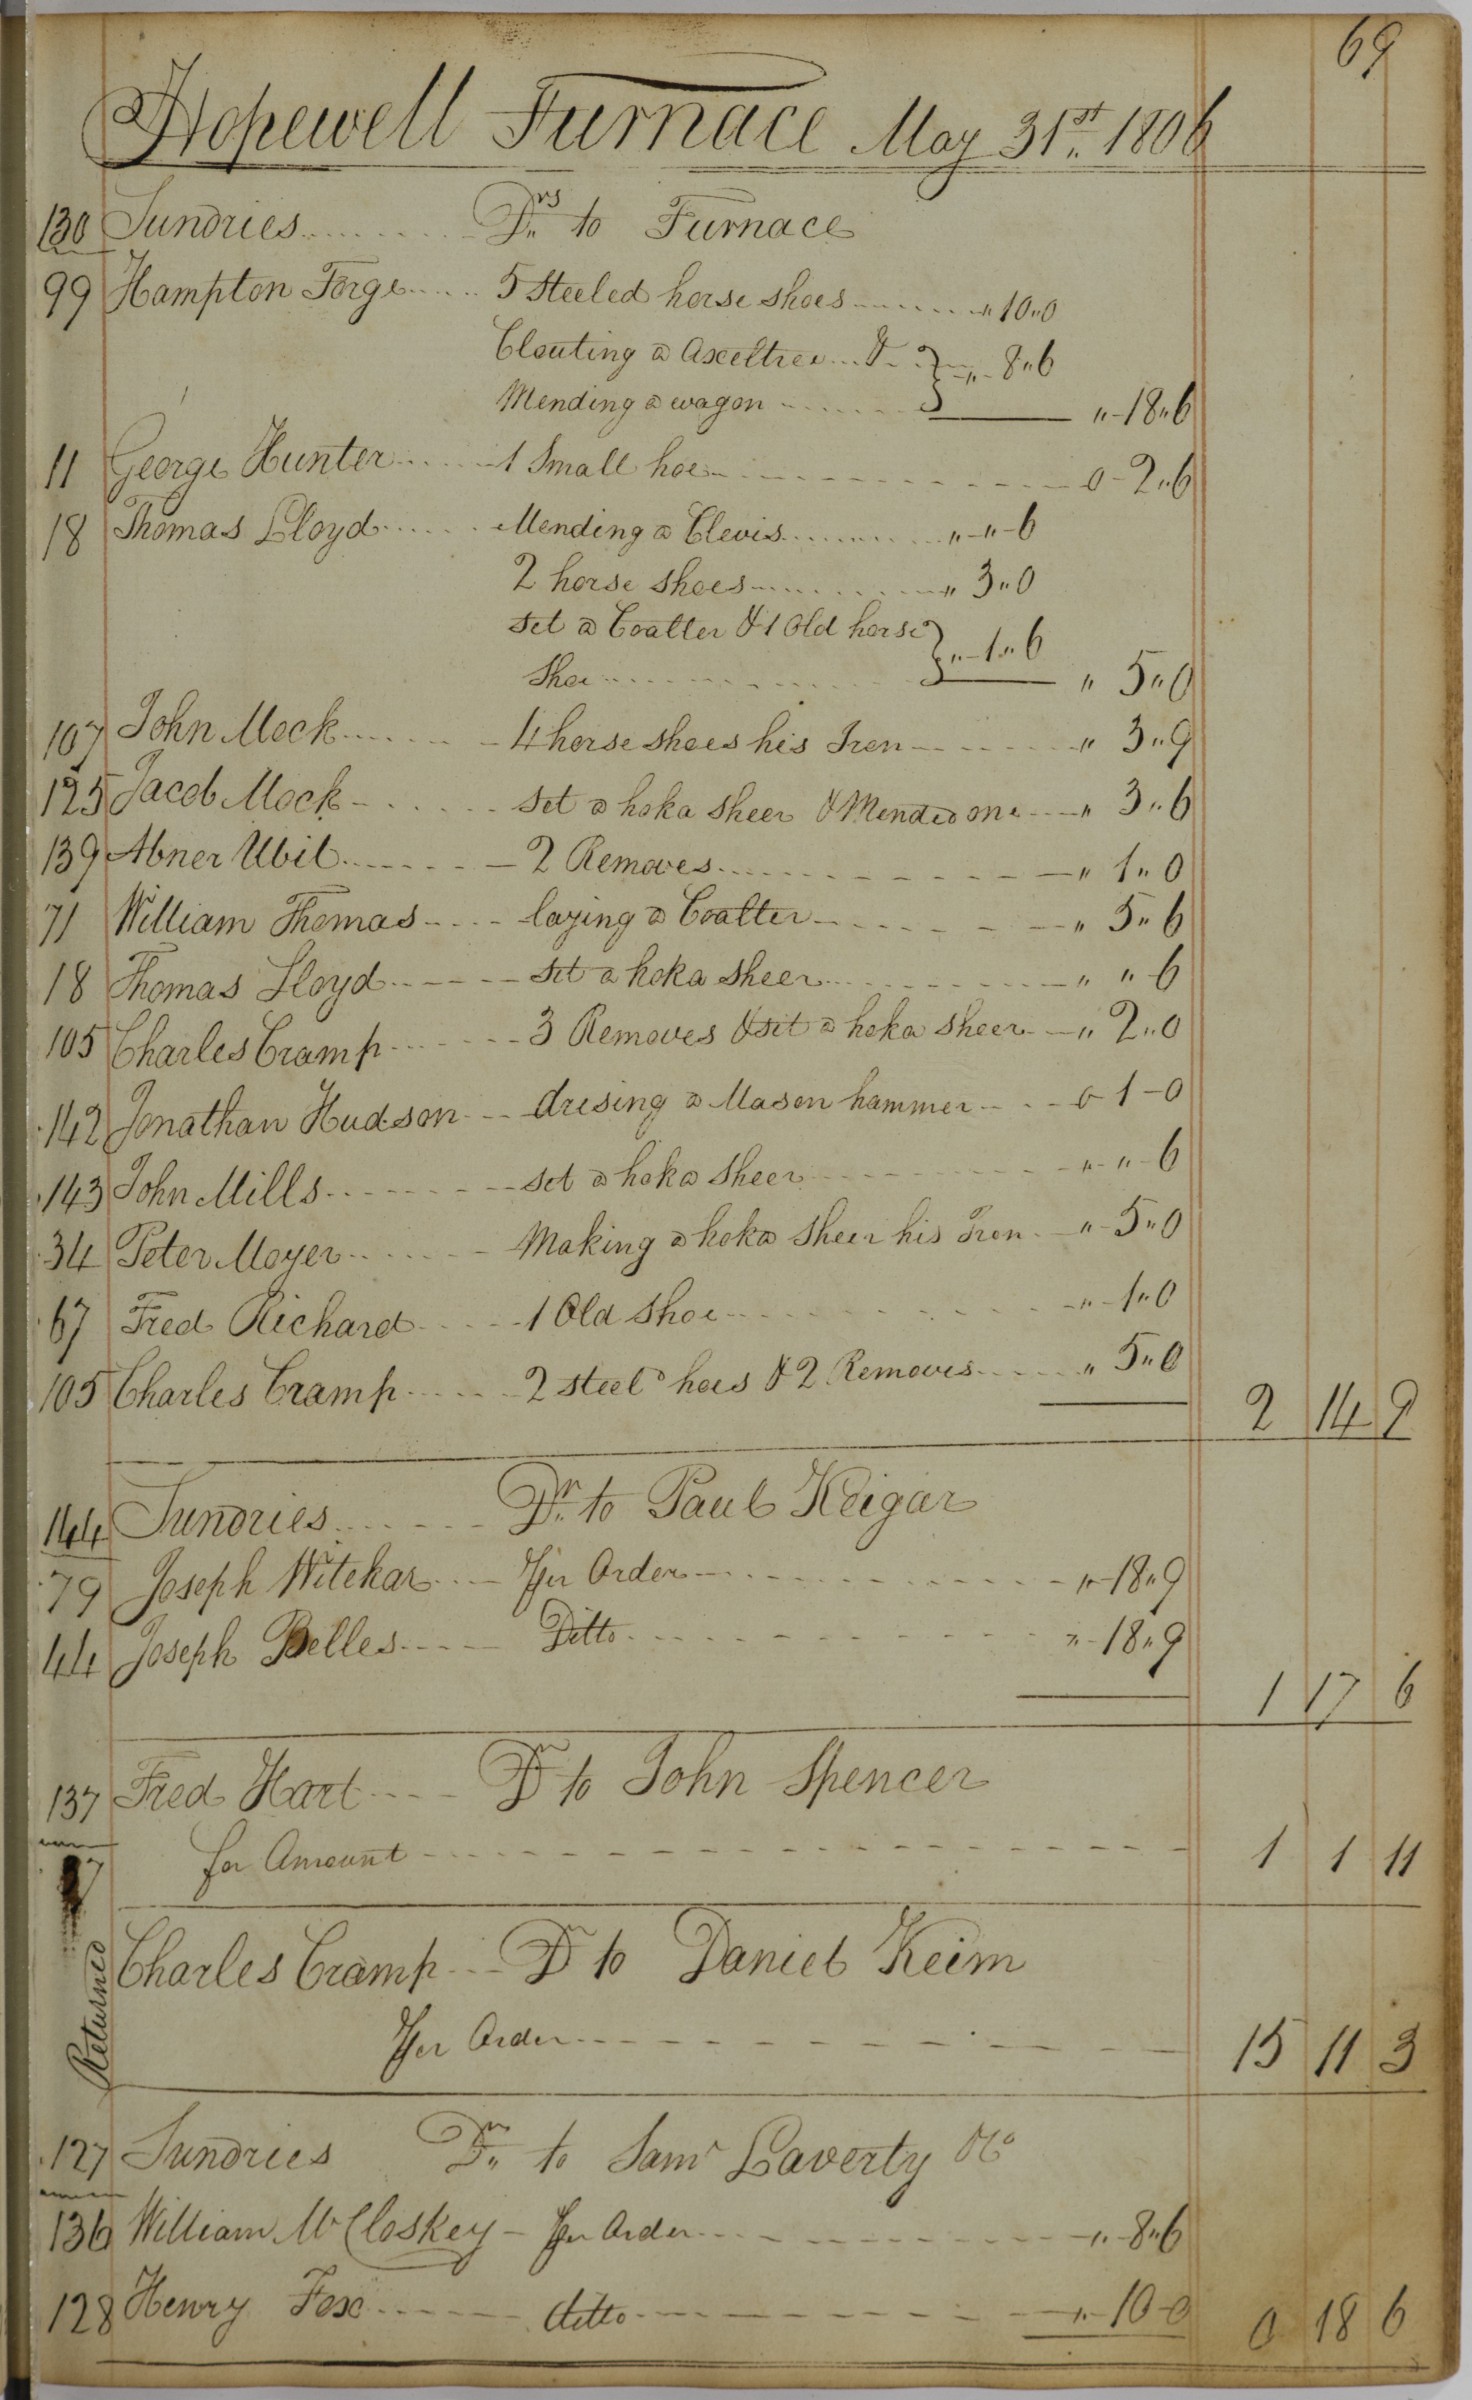 69
Hopewell Furnace May 31st. 1806
130 Sundries........ Drs. to Furnace
99 Hampton Forge..... 5 Steeled horse shoes........ " 10"0
Clouting a Axeltree... & } " 8"6
Mending a wagon ........ "-18"6
11 George Hunter......1 Small hoe ........ 0-2"6
18 Thomas Lloyd...... Mending a Clevis......... "-"-6
2 horse shoes.......... " 3"0
set a Coatter & 1 Old horse } "-1"6
Shoe .............. " 5"0
107 John Mock........ 4 horse shoes his Iron ...... " 3"9
125 Jacob Mock ....... set a hoka sheer & Mended one .... " 3"6
139 Abner Ubil ........ 2 Removes ............ " 1"0
71 William Thomas ..... laying a Coatter ........ " 5"6
18 Thomas Lloyd ...... set a hoka sheer ......... " "6
105 Charles Cramp ....... 3 Removes & set a hoka sheer ... " 2"0
142 Jonathan Hudson ... dresing a Mason hammer .... 0-1-0
143 John Mills ......... set a hoka sheer ......... "-"-6
34 Peter Moyer ........ Making a hoka sheer his Iron ... "-5"0
67 Fred Richard ...... 1 Old shoe ............ "-1"0
105 Charles Cramp ...... 2 steeld hoes & 2 Removes ..... " 5"0
2 14 9
144 Sundries ....... Dr. to Paul Keigar
79 Joseph Witekar .... Per Order ............ "-18"9
44 Joseph Belles ..... Ditto ............ "-18"9
1 17 6
137 Fred Hart .... Dr to John Spencer
for Amount ............ 1 1 11
Returned Charles Cramp ... Dr to Daniel Keim
Per Order ............ 15 11 3
127 Sundries Dr. to Saml Laverty &Co
136 William McCloskey - Per Order .......... "-8"6
128 Henry Fox ....... ditto .......... "-10-0
0 18 6